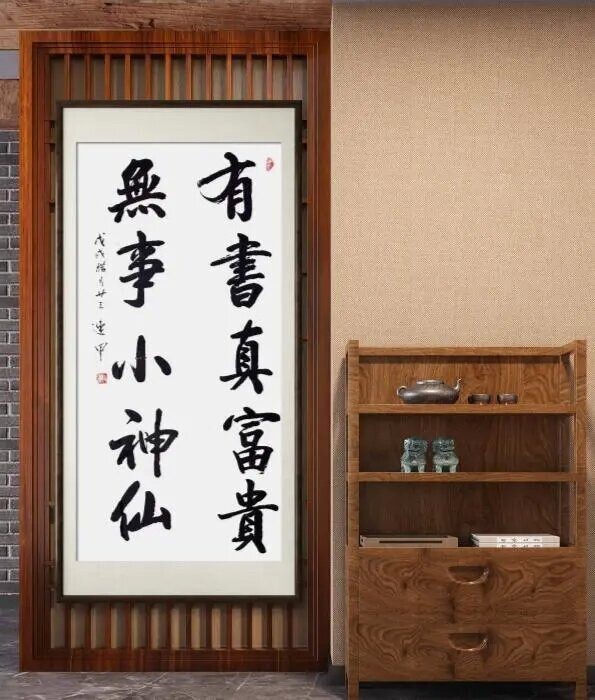 有書真富貴
無事小神仙
戊戌腊月廿三 運甲